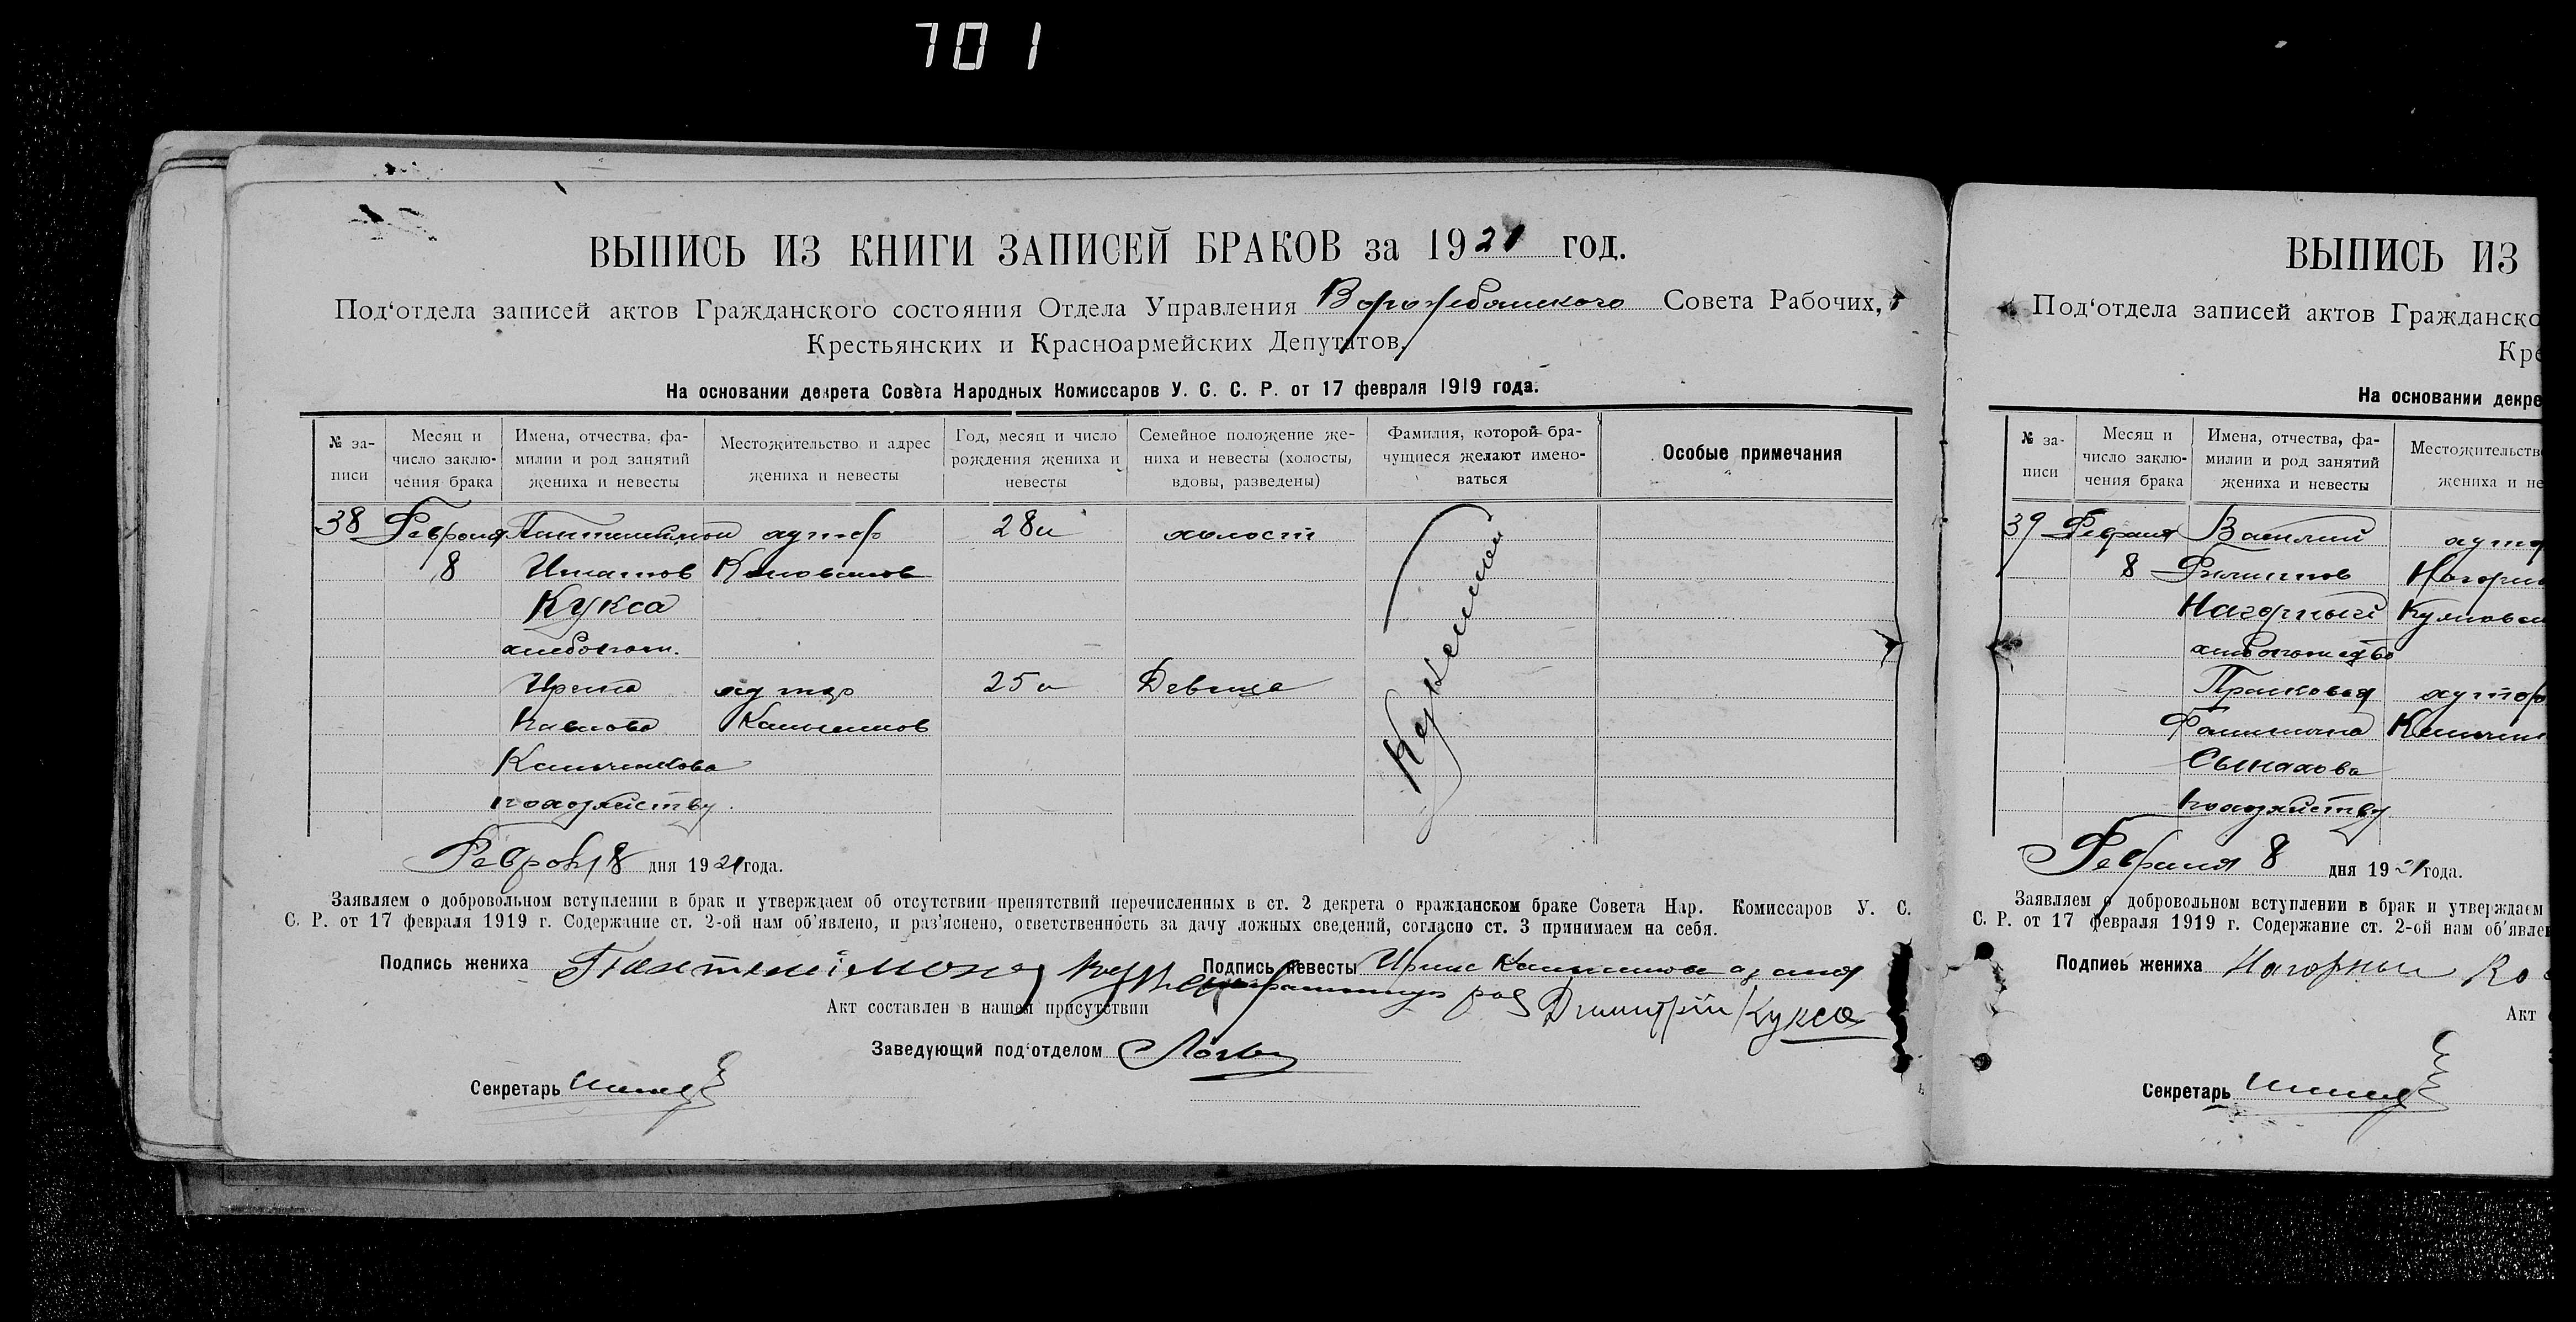 701
ВЫПИСЬ ИЗ КНИГИ ЗАПИСЕЙ БРАКОВ за 1921 год.
Под‘отдела записей актов Гражданского состояния Отдела Управления Ворожбянского Совета Рабочих,
Крестьянских и Красноармейских Депутатов.
На основании декрета Совета Народных Комиссаров У. С. С. Р. от 17 февраля 1919 года.
№ за-писи
Месяц и число заклю-чения брака
Имена, отчества, фа-милии и род занятий жениха и невесты
Местожительство и адрес жениха и невесты
Год, месяц и число рождения жениха и невесты
Семейное положение же-ниха и невесты (холосты, вдовы, разведены)
Фамилия, которой бра-чущиеся желают имено-ваться
Особые примечания
38 Февраля Пантелеимон хутор 28 холост
8 Игнатов
Кукса
хлебопаш.
Ирина хутор 25 Девица
Павлова
похозяйству.
Февраля 8 дня 1921 года.
Заявляем о добровольном вступлении в брак и утверждаем об отсутствии препятствий перечисленных в ст. 2 декрета о гражданском браке Совета Нар. Комиссаров У. С.
С. Р. от 17 февраля 1919 г. Содержание ст. 2-ой нам об‘явлено, и раз‘яснено, ответственность за дачу ложных сведений, согласно ст. 3 принимаем на себя.
Подпись жениха Пантелеімонъ Подпись невесты Ирина
Акт составлен в нашем присутствии Димитрій Кукса
Заведующий под‘отделом
Секретарь
ВЫПИСЬ ИЗ
Под‘отдела записей актов Гражданско
Кре
На основании декре
№ за-писи
Месяц и число заклю-чения брака
Имена, отчества, фа-милии и род занятий жениха и невесты
Местожительств
жениха и не
39 Февраля Василий хутор
8 Филиппов
Нагорный
хлебопашество
Прасковья хутор
похозяйству
Февраля 8 дня 1921 года.
Заявляем о добровольном вступлении в брак и утверждаем
С. Р. от 17 февраля 1919 г. Содержание ст. 2-ой нам об‘явле
Подпись жениха Нагорный
Акт
Секретарь